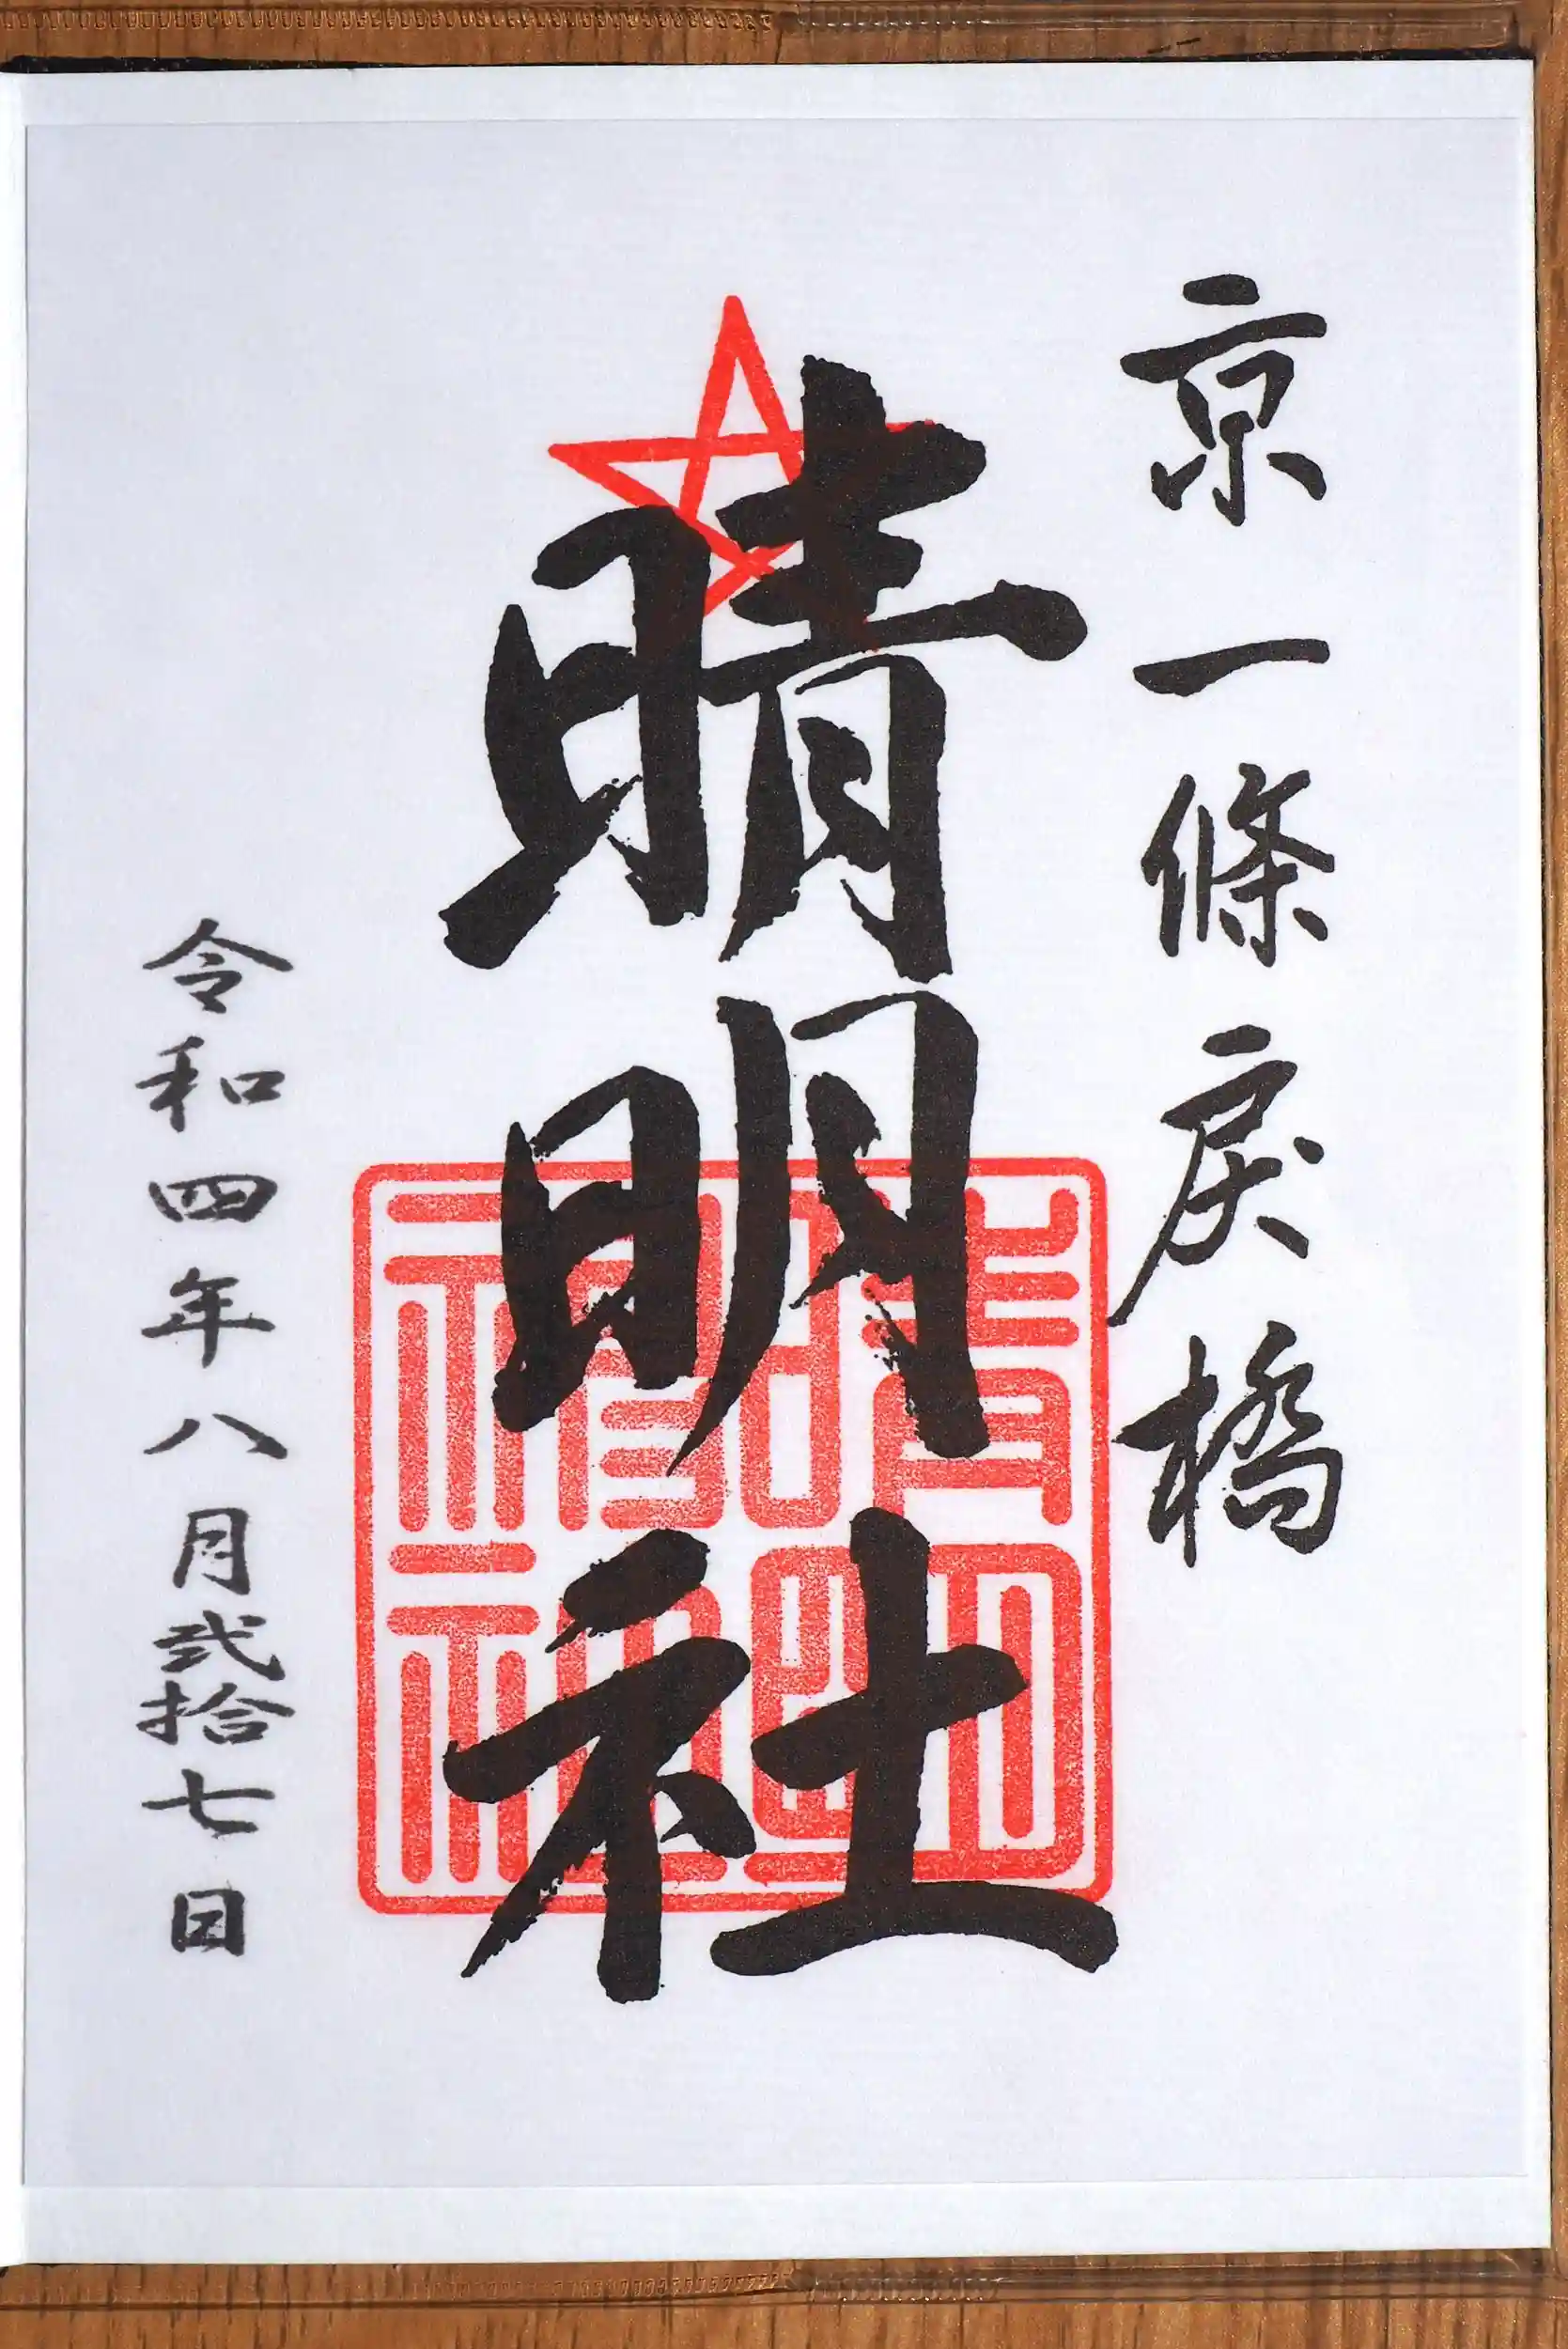 京一條戻橋
晴明社
晴明神社
令和四年八月弐拾七日